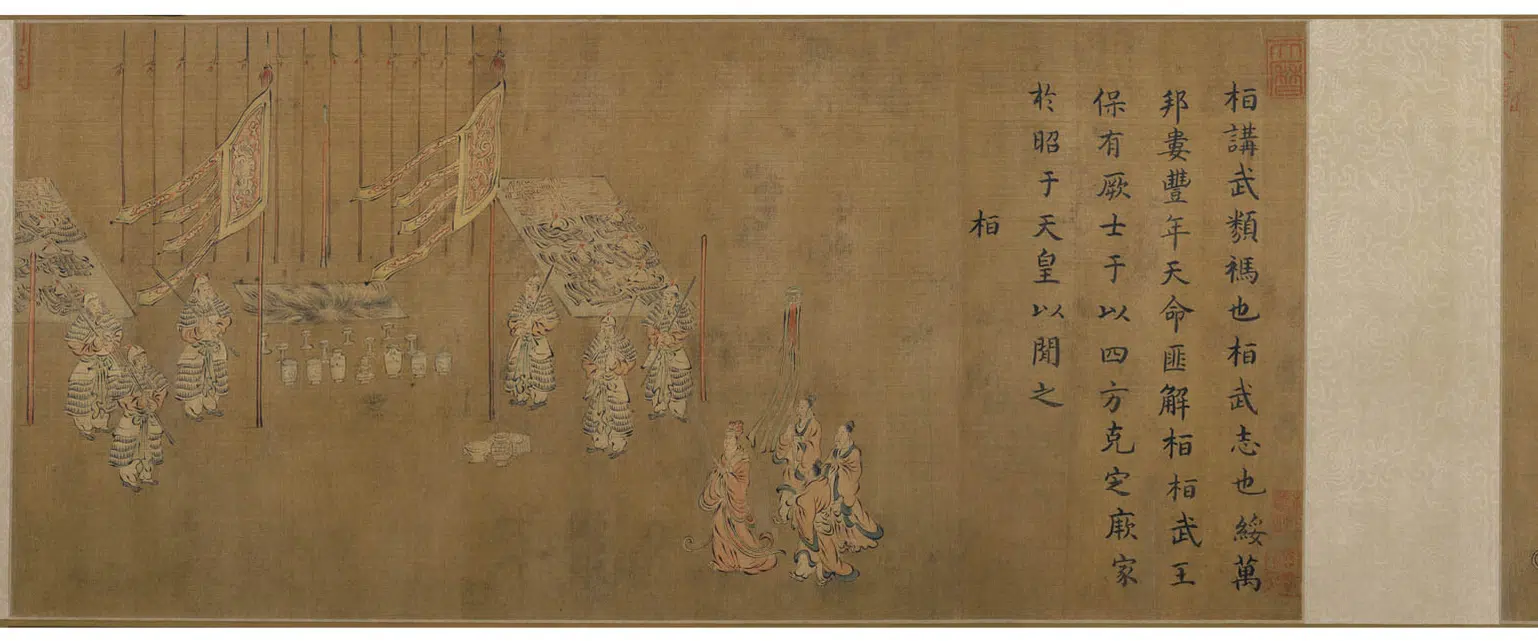 桓講武類禡也桓武志也綏萬
邦婁豐年天命匪解桓桓武王
保有厥士于以四方克定厥家
於昭于天皇以閒之
桓